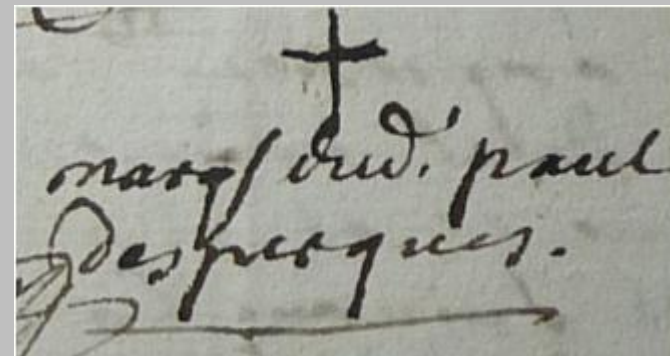 marq/ dud. paul
desperques.